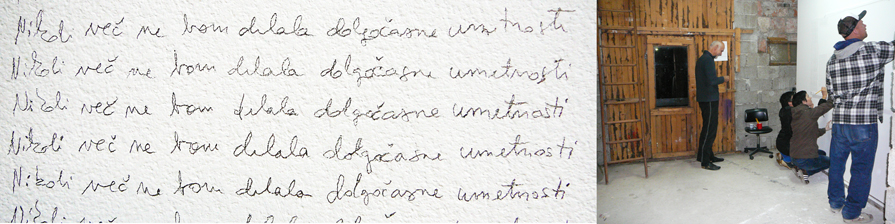 Nikoli več ne bom delala dolgočasne umetnosti
Nikoli več ne bom delala dolgočasne umetnosti
Nikoli več ne bom delala dolgočasne umetnosti
Nikoli več ne bom delala dolgočasne umetnosti
Nikoli več ne bom delala dolgočasne umetnosti
Nikoli več ne bom delala dolgočasne umetnosti